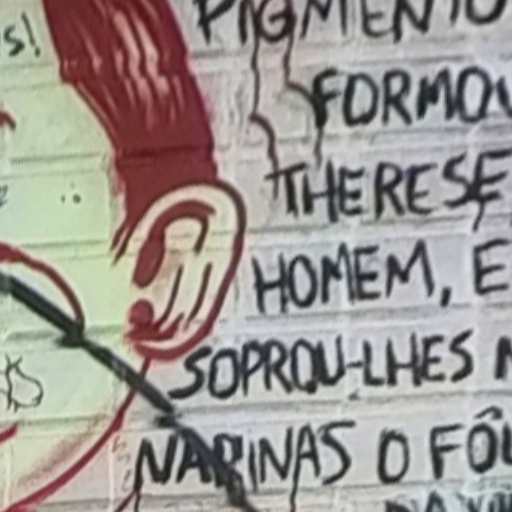 s!
PIGMENTO
FORMOU
THERESE
HOMEM, E
SOPROU-LHES N
NARINAS O FÔL